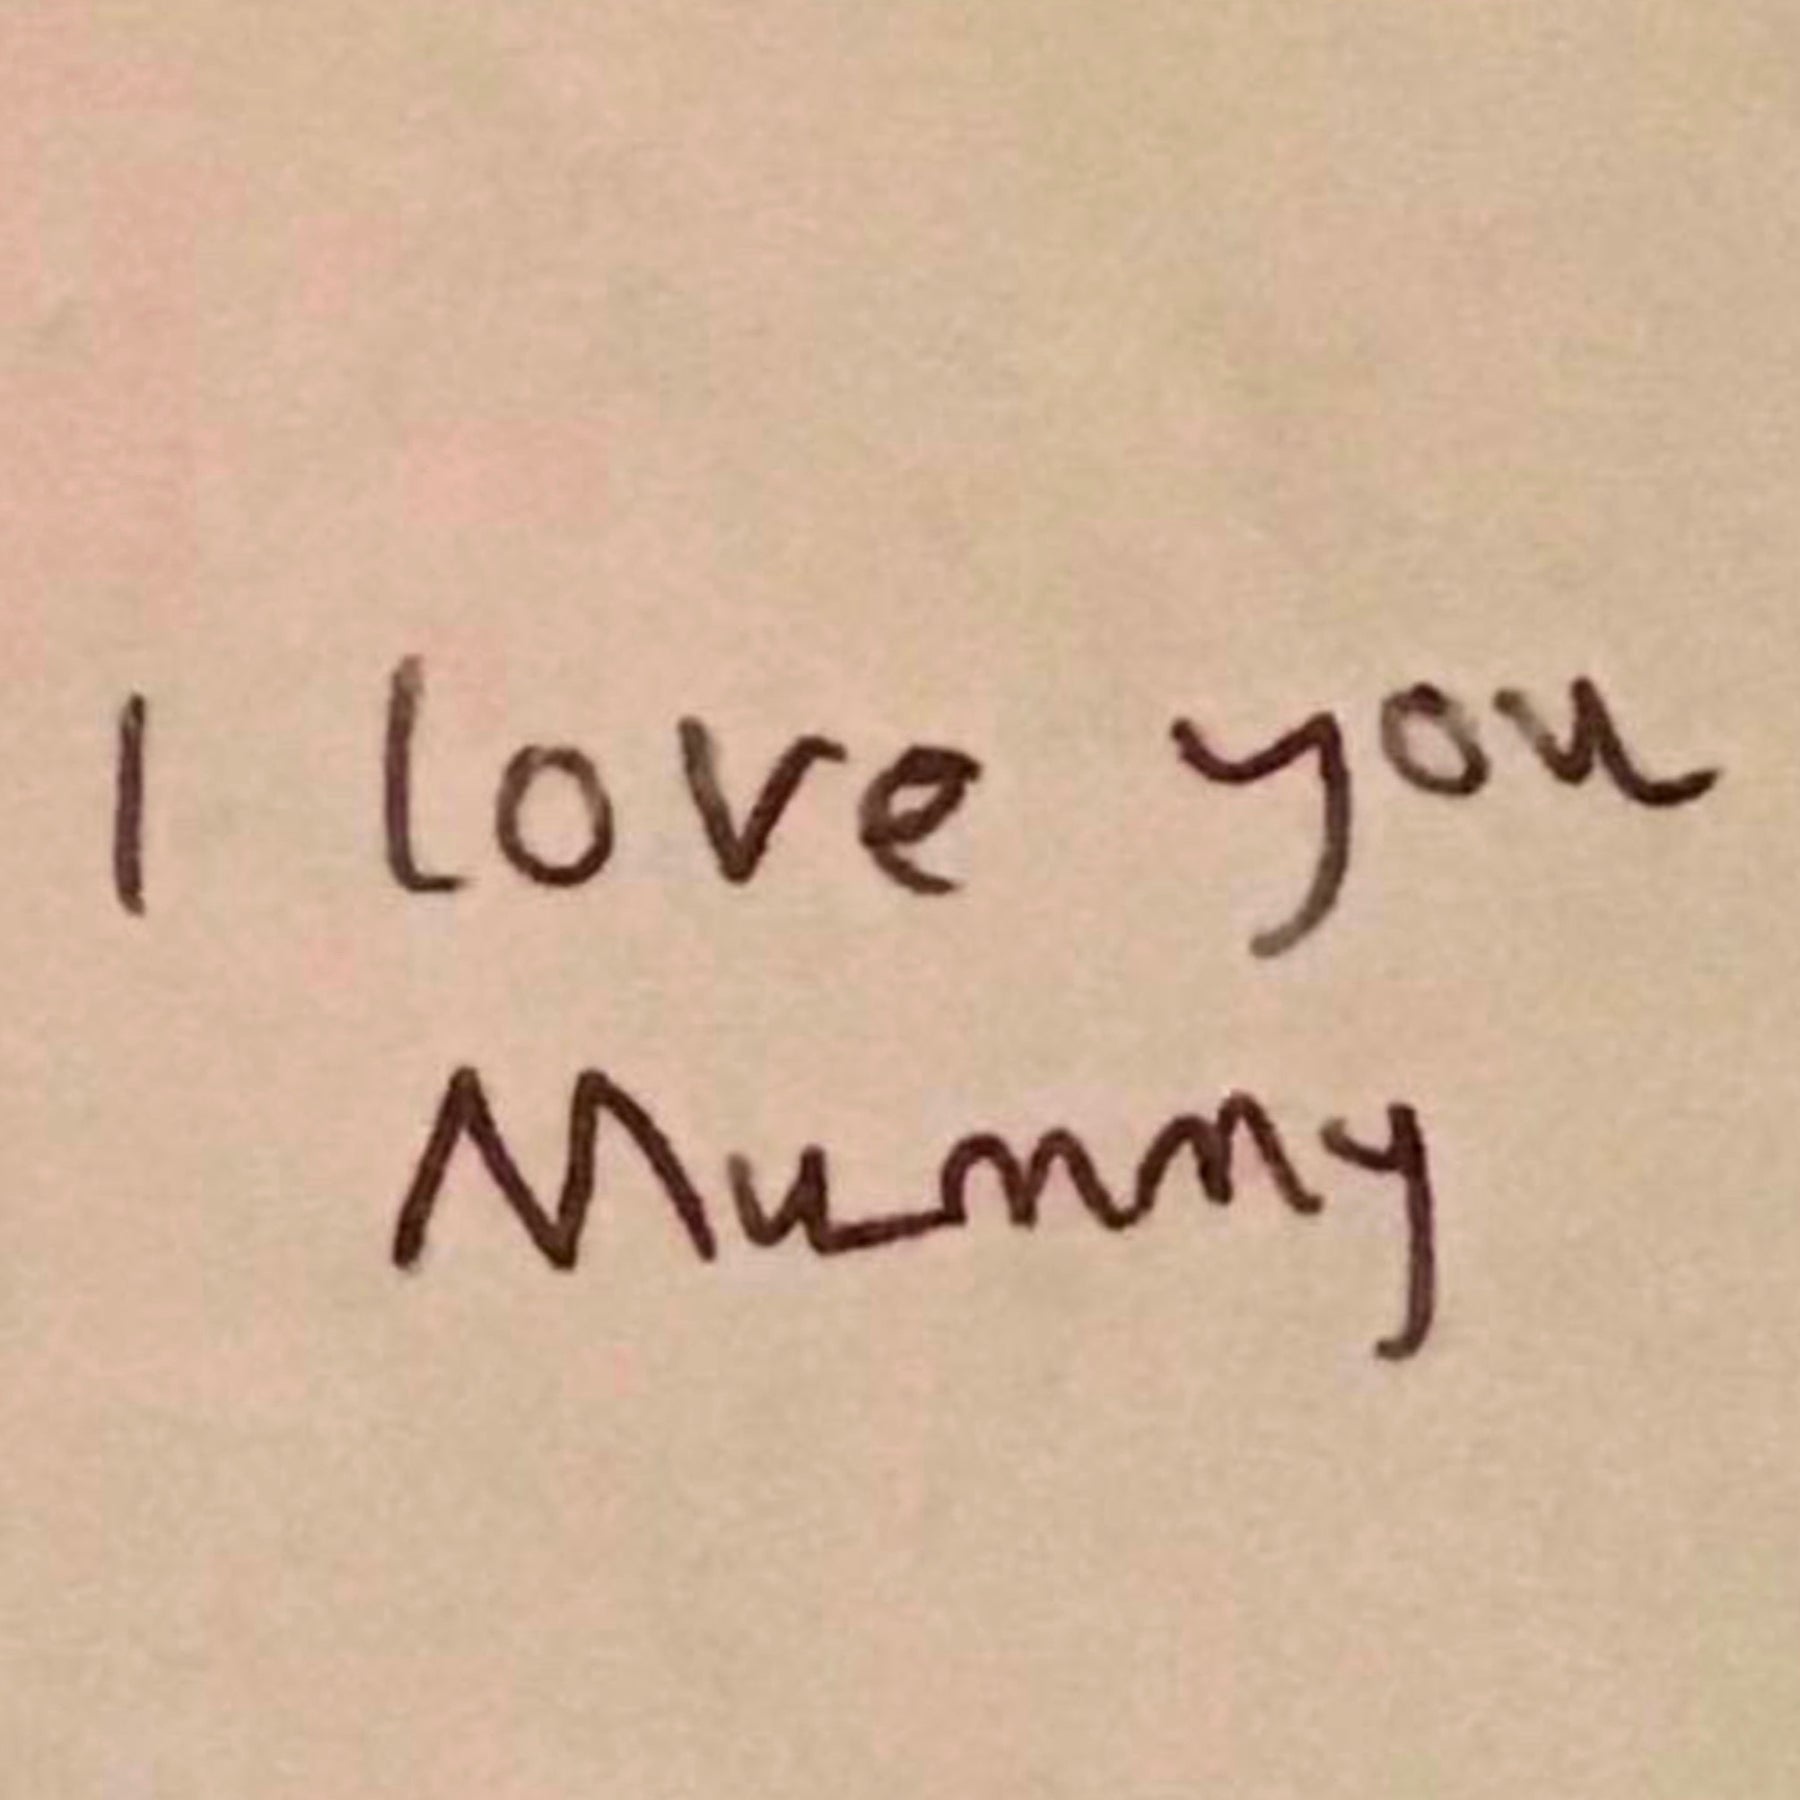 I love you
Mummy